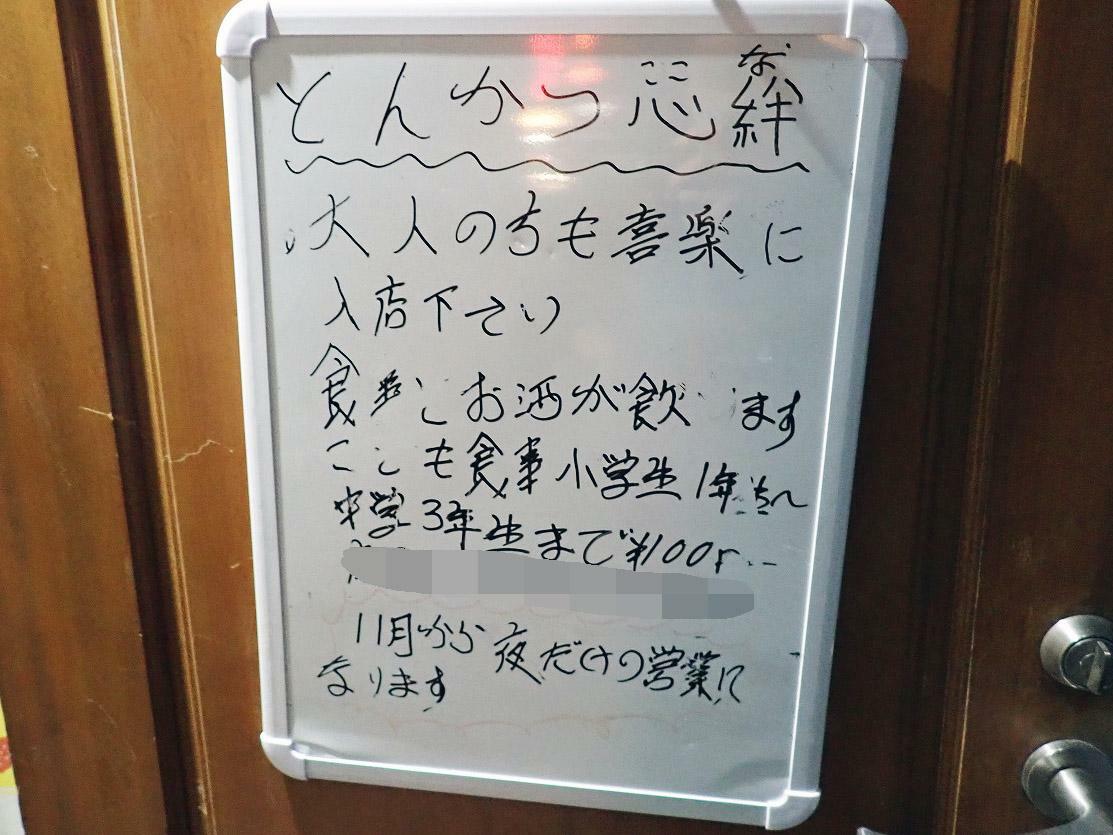 とんかつ 心絆
大人の方も喜楽に
入店下さい
食事とお酒が飲 ます
こども食事 小学生1年
中学3年生まで¥100
11月から夜だけの営業に
なります